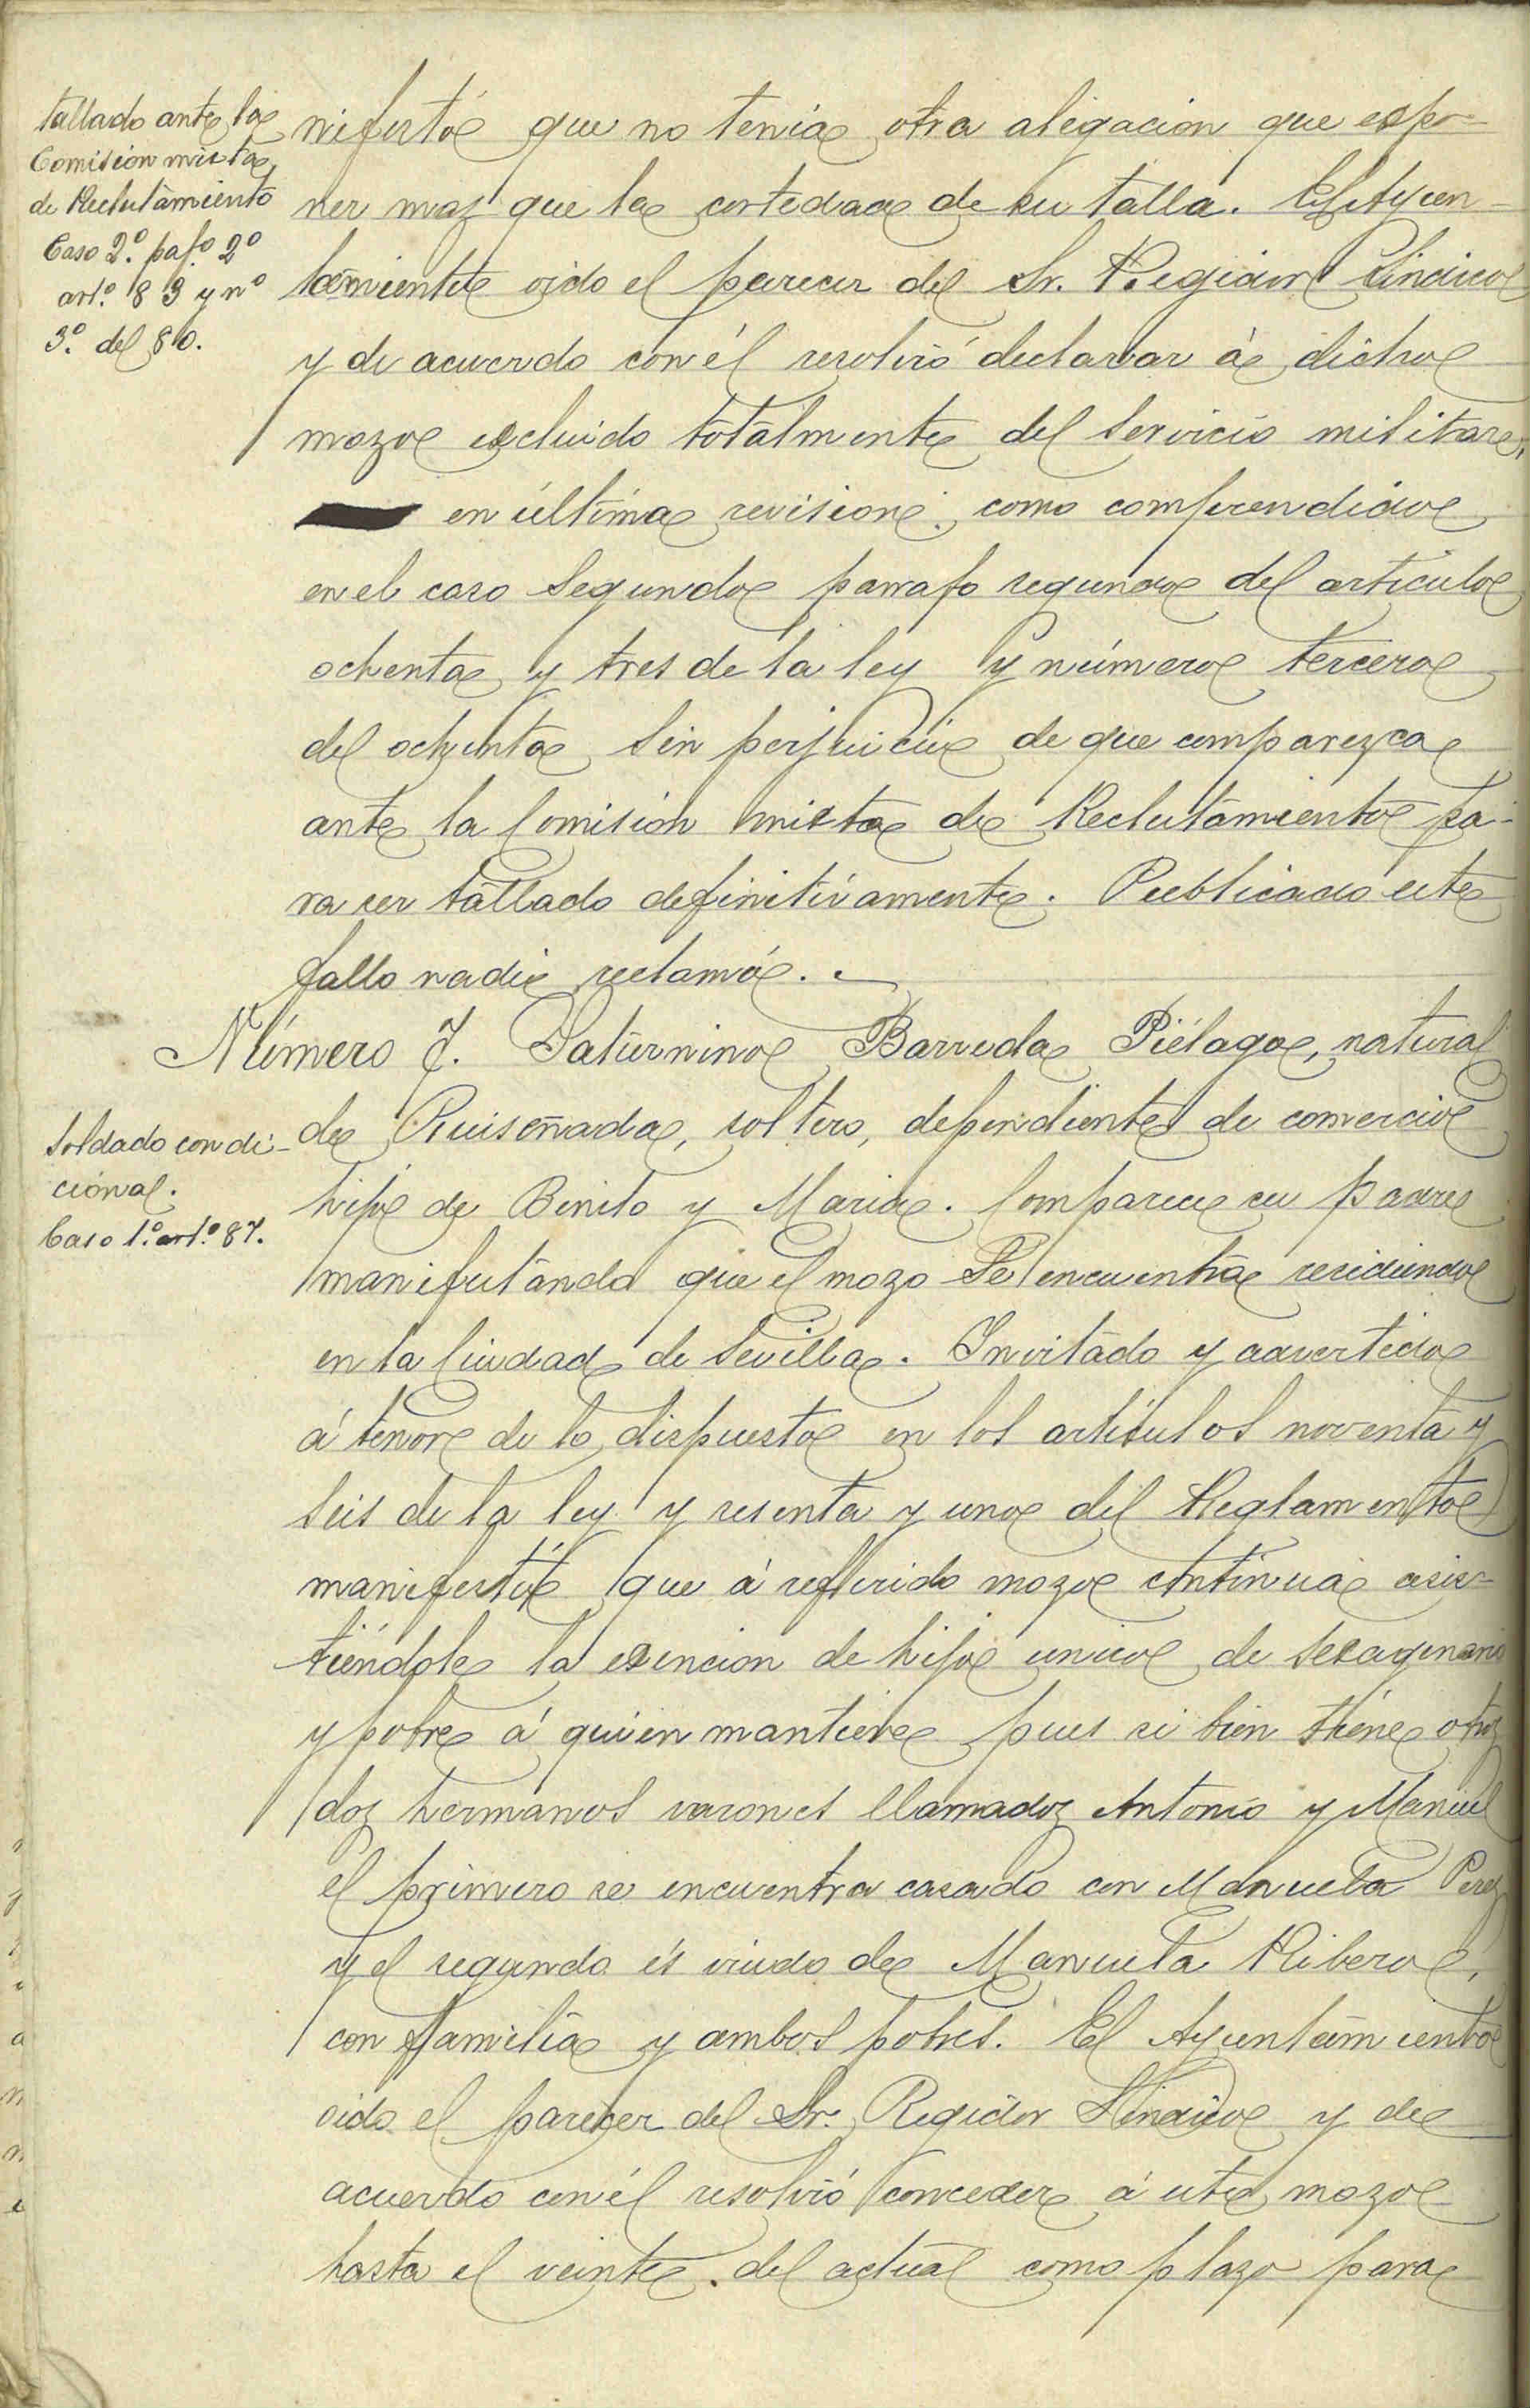 tallado ante la
Comisión mixta
de Reclutamiento
Caso 2.º pafº. 2º
artº. 83 y nº
3º. del 80.
nifestó que no tenía otra alegación que expo-
ner mas que la cortedad de su talla. El Ayun-
tamiento oido el parecer del Sr. Regidor Síndico
y de acuerdo con él resolvió declarar á dicho
mozo excluido totalmente del servicio militar,
en última revisión, como comprendido
en el caso segundo parrafo segundo del artículo
ochenta y tres de la ley y número tercero
del ochenta sin perjuicio de que comparezca
ante la Comisión mixta de Reclutamiento pa-
ra ser tallado definitivamente. Publicado este
fallo nadie reclamó.
Número 7. Saturnino Barreda Piélago, natural
Soldado condi-
cional.
Caso 1.º artº. 87.
de Ruiseñada, soltero, dependiente de comercio
hijo de Benito y Maria. Comparece su padre
manifestando que el mozo se encuentra residiendo
en la Ciudad de Sevilla. Invitado y advertido
á tenor de lo dispuesto en los artículos noventa y
seis de la ley y sesenta y uno del Reglamento
manifestó que á referido mozo continua asis-
tiéndole la exencion de hijo unico de sexagenario
y pobre á quien mantiene pues si bien tiene otros
dos hermanos varones llamados Antonio y Manuel
el primero se encuentra casado con Manuela Perez
y el segundo és viudo de Manuela Ribero,
con familia y ambos pobres. El Ayuntamiento
oido el parecer del Sr. Regidor Síndico y de
acuerdo con él resolvió conceder á este mozo
hasta el veinte del actual como plazo para